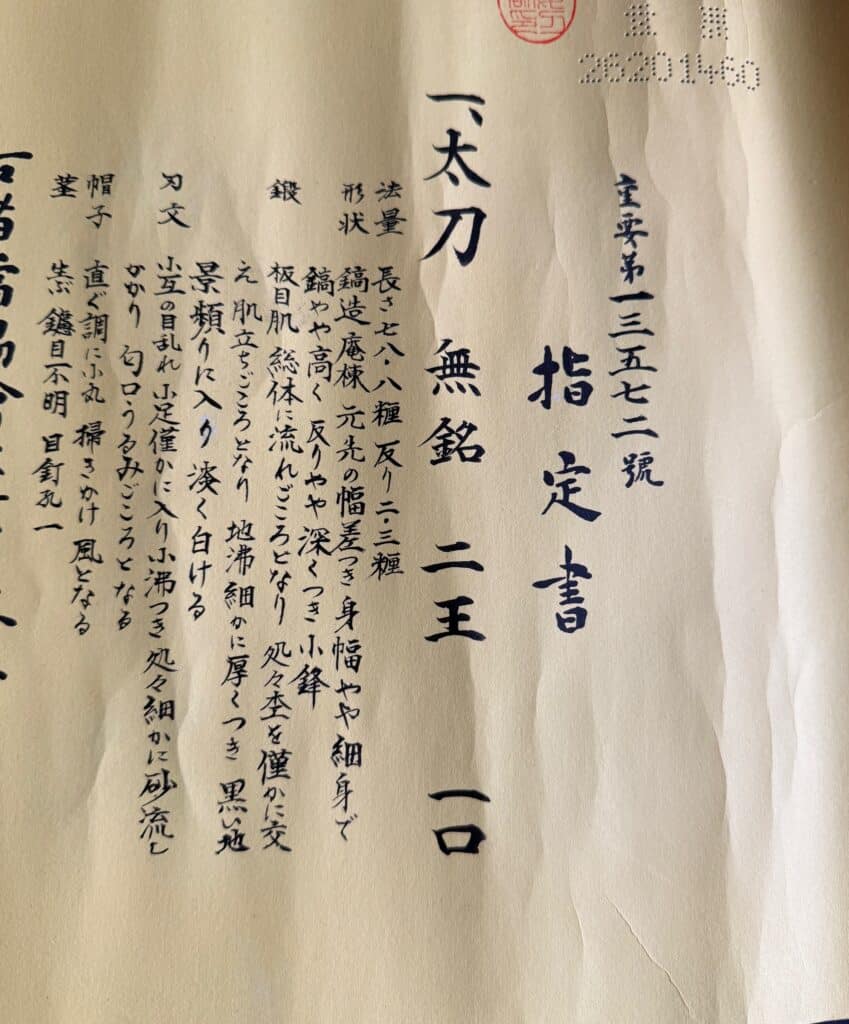 26201460
重要第一三五七二號
指定書
一、太刀 無銘 二王 一口
法量 長さ七八・八糎 反り二・三糎
形状 鎬造 庵棟 元先の幅差つき 身幅やや細身で
鎬やや高く 反りやや深くつき 小鋒
鍛 板目肌 総体に流れごころとなり 処々杢を僅かに交
え 肌立ちごころとなり 地沸細かに厚くつき 黒い地
景頻りに入り 淡く白ける
刃文 小互の目乱れ 小足僅かに入り 小沸つき 処々細かに砂流し
かかり 匂口うるみごころとなる
帽子 直ぐ調に小丸 掃きかけ風となる
茎 生ぶ 鑢目不明 目釘孔一